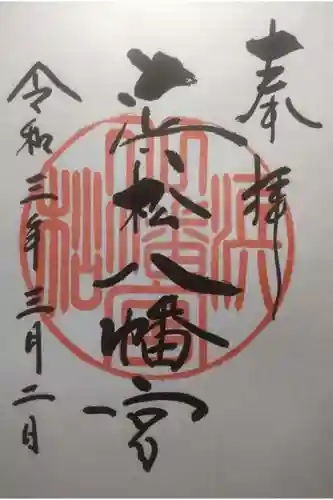 奉拝
浜松八幡宮
令和三年三月二日
浜松八幡宮